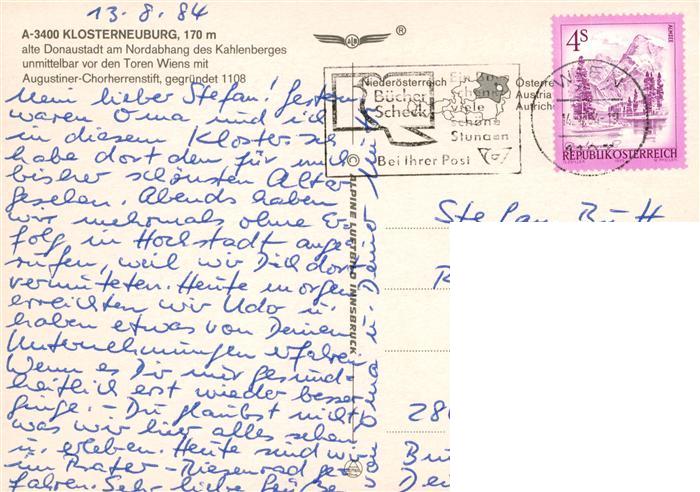 13.8.84
A-3400 KLOSTERNEUBURG, 170 m
alte Donaustadt am Nordabhang des Kahlenberges
unmittelbar vor den Toren Wiens mit
Augustiner-Chorherrenstift, gegründet 1108
Mein lieber Stefan! Gestern
waren Oma und ich
in diesem Kloster. Ich
habe dort den für mich
bisher schönsten Altar
gesehen. Abends haben
wir mehrmals ohne Er-
folg in Hochstadt ange-
rufen, weil wir Dich dort
vermuteten. Heute morgen
erreichten wir Udo u.
haben etwas von Deinen
Unternehmungen erfahren.
Wenn es Dir nur gesund-
heitlich erst wieder besser
ginge. - Du glaubst nicht
was wir hier alles sehen
u. erleben. Heute sind wir
im Prater - Riesenrad ge-
fahren. Sehr liebe Grüße
Oma u. Deine
ALPINE LUFTBILD INNSBRUCK
ALB
®
Niederösterreich
Bücher
Scheck
viele
schöne
Stunden
Bei Ihrer Post
Österre
Austria
Autrich
WIEN
4S
ALMSEE
REPUBLIK ÖSTERREICH
Stefan
R
280